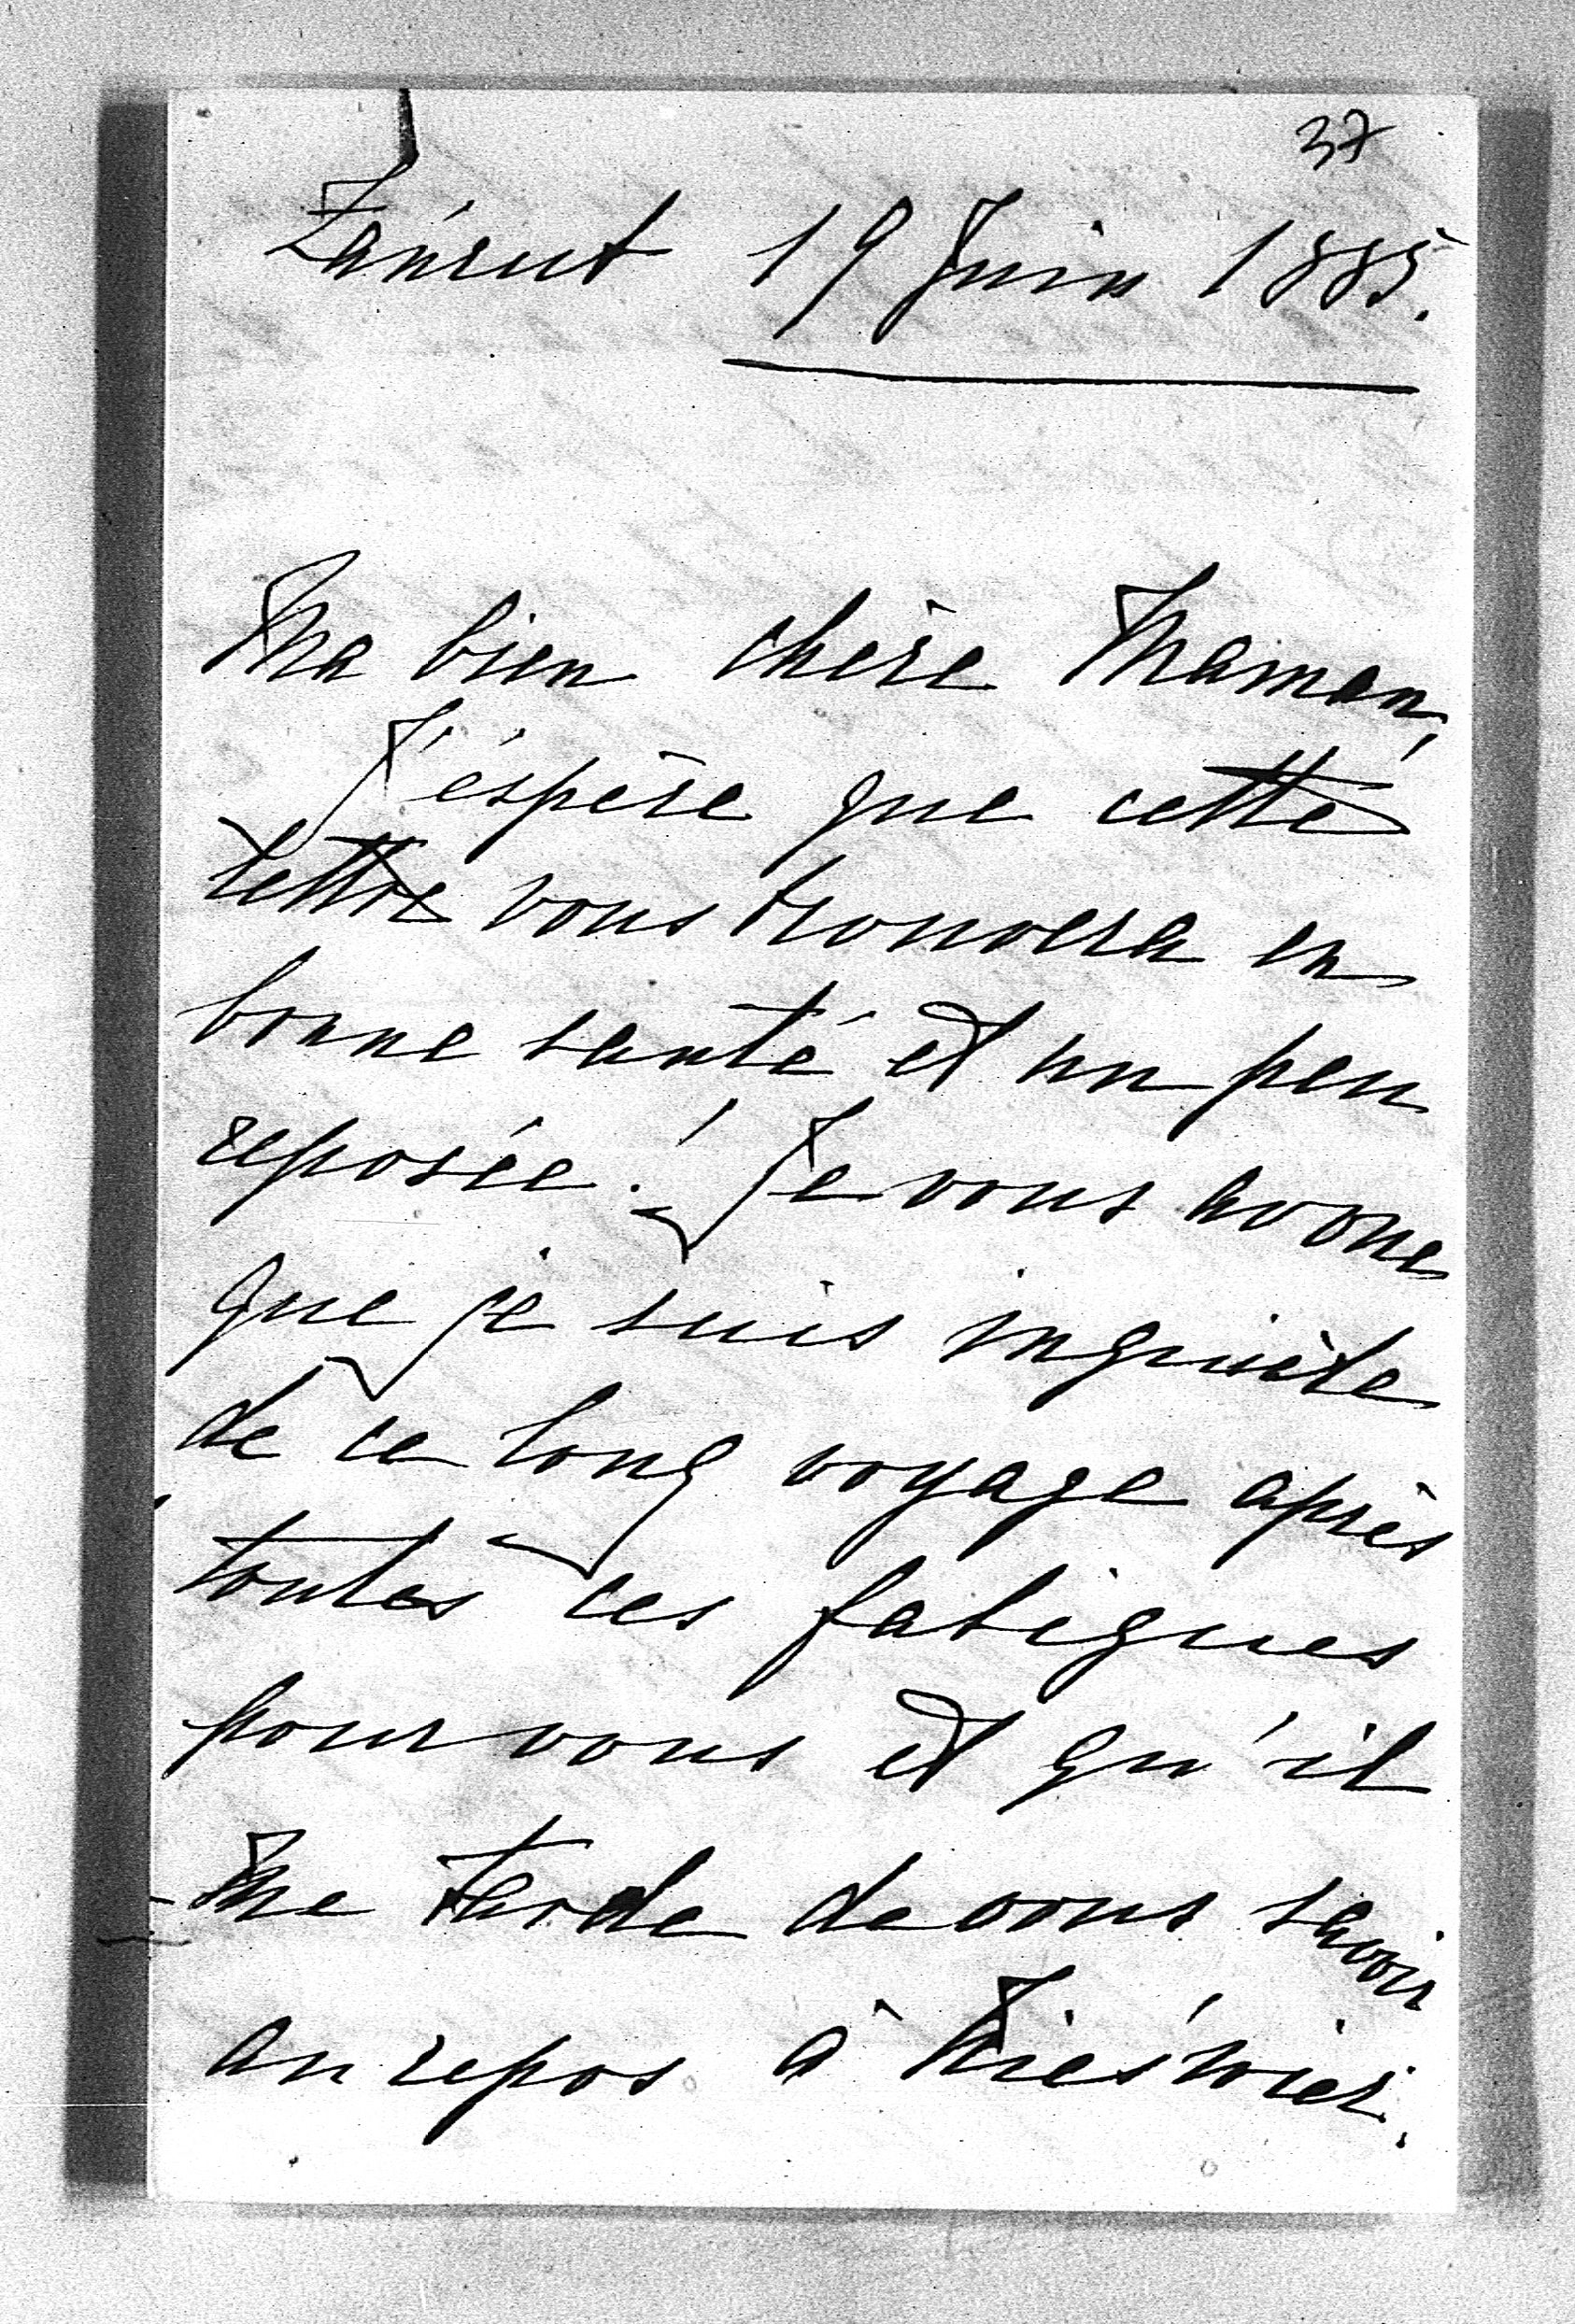 37
Łańcut 19 Juin 1885.
Ma bien chère Maman,
J'éspère que cette
lettre vous trouvera en
bonne santé et un peu
reposée. Je vous avoue
que je suis inquiète
de ce long voyage après
toutes ces fatigues
pour vous et qu'il
me tarde de vous savoir
au repos à Nieśwież.